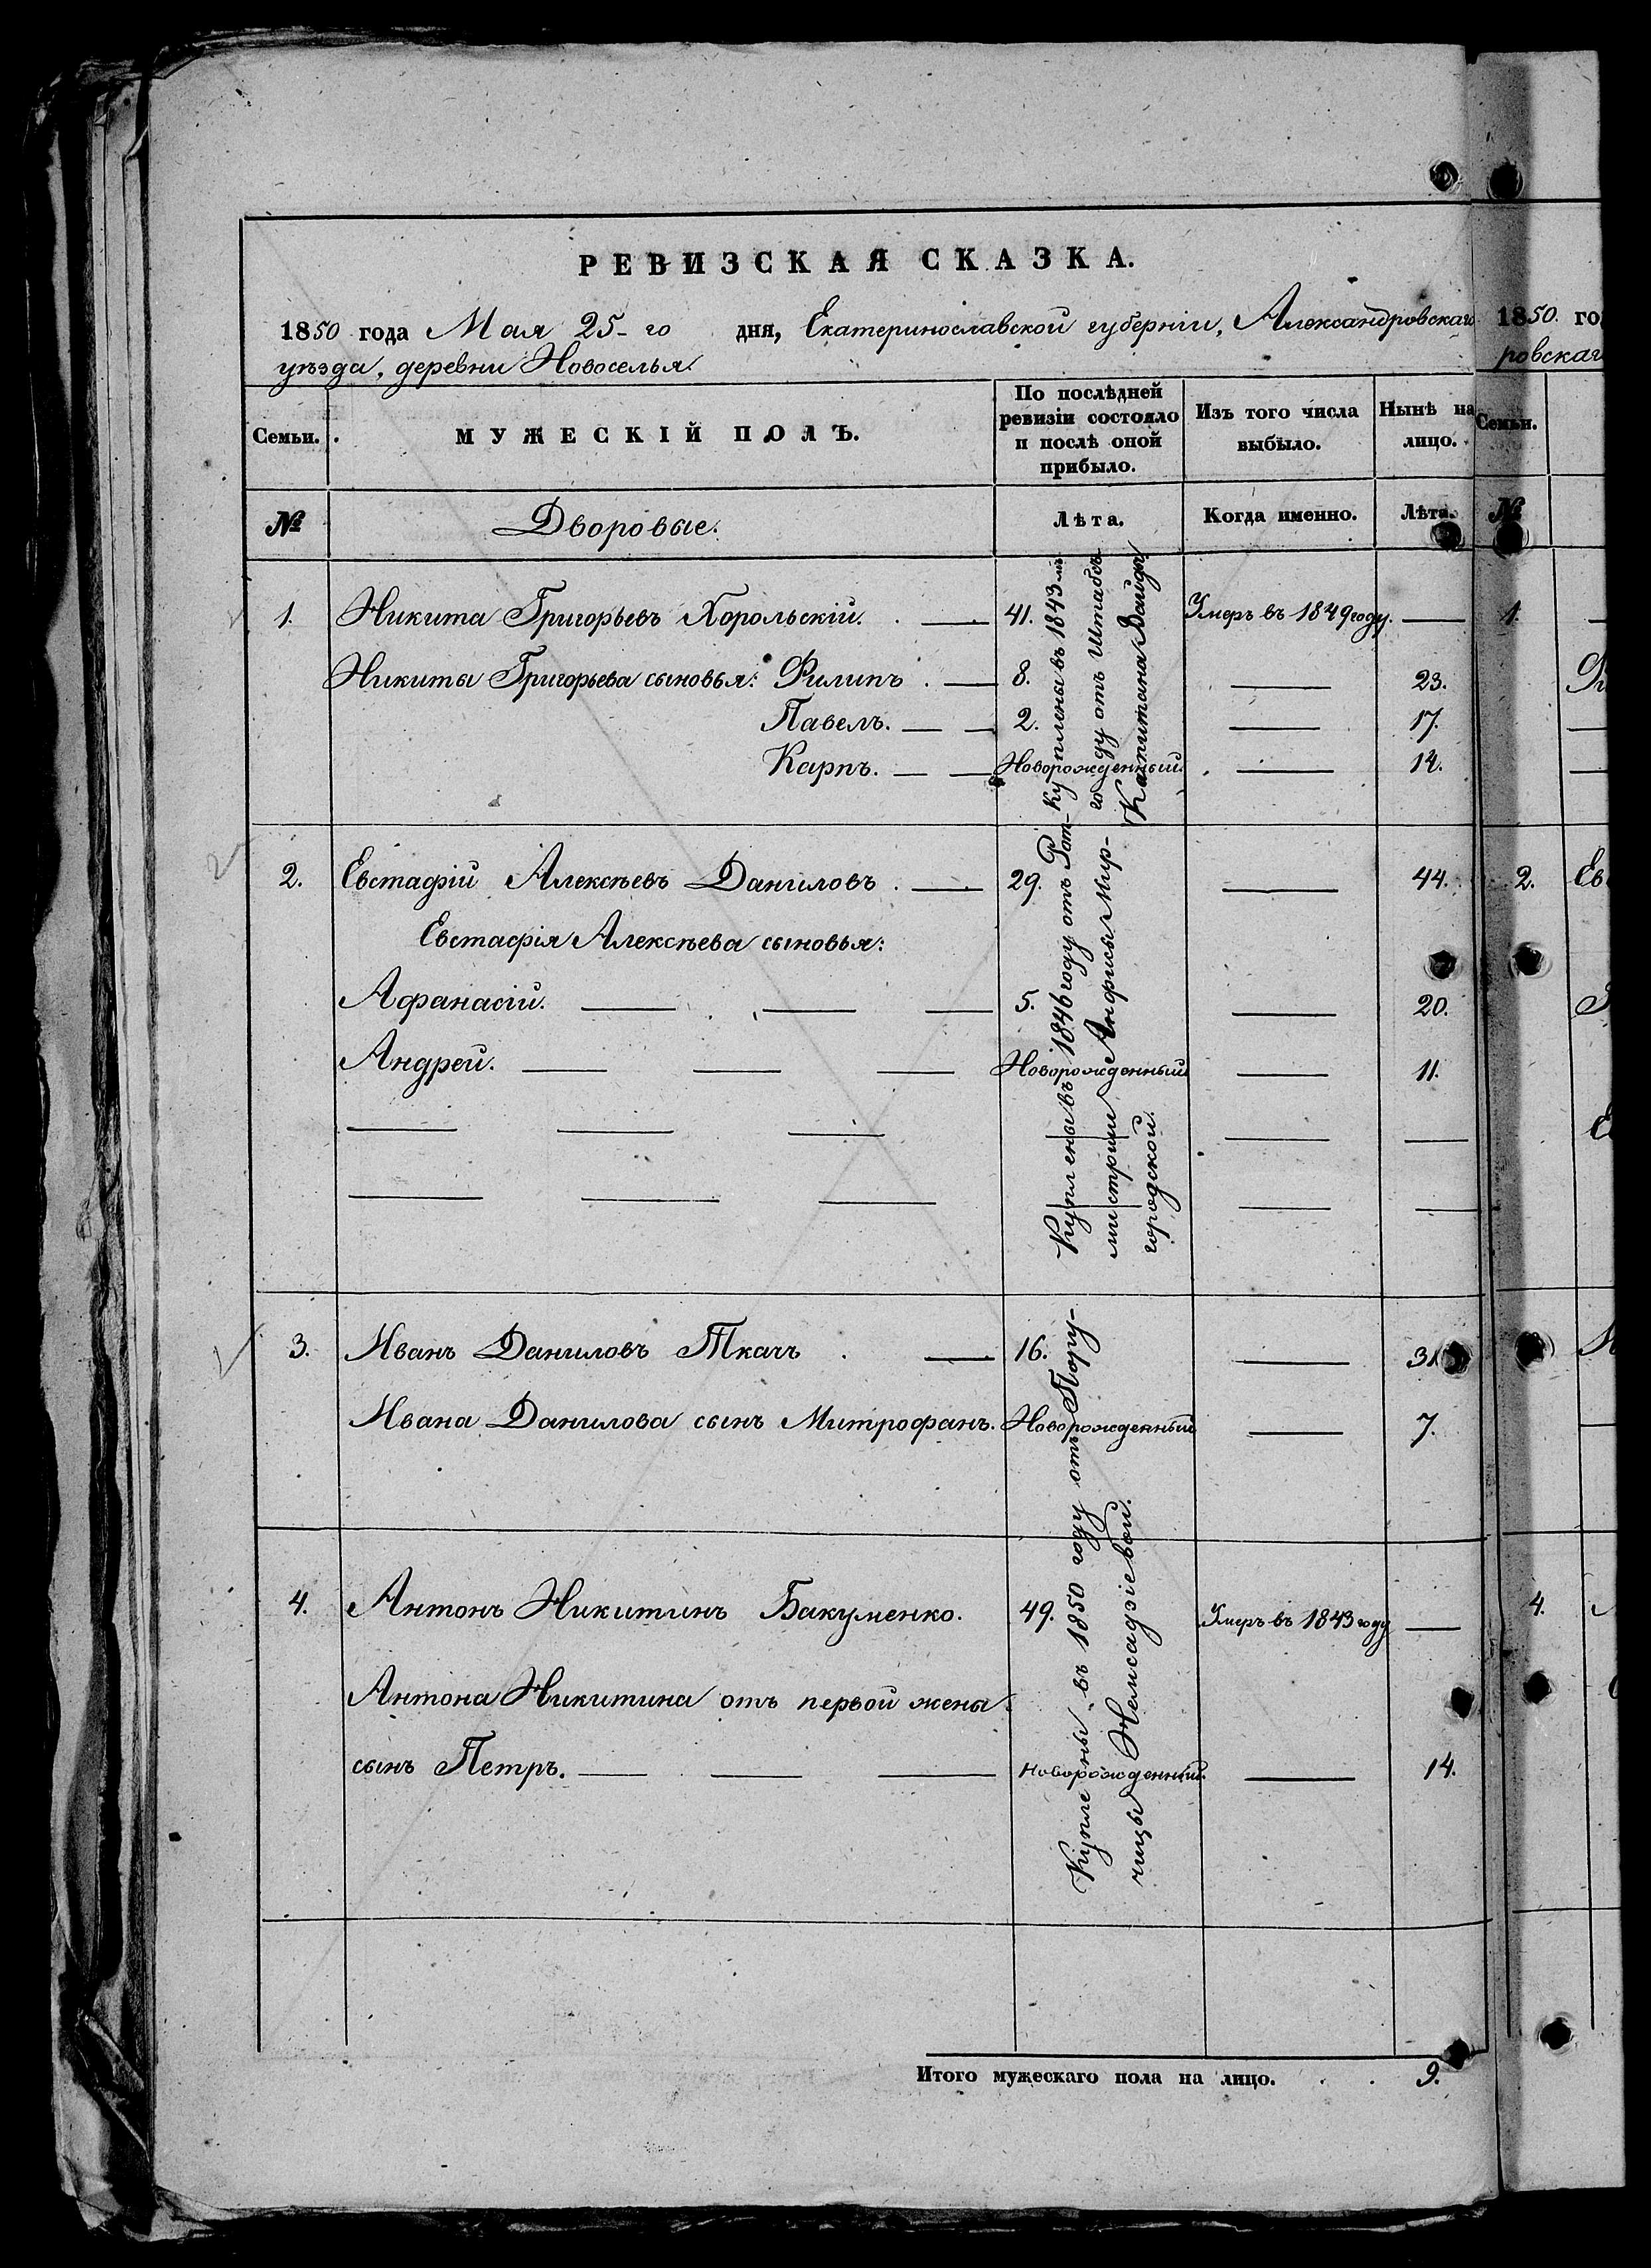 РЕВИЗСКАЯ СКАЗКА.
1850 года Мая 25-го дня, Екатеринославской губерніи, Александровскаго
уѣзда, деревни Новоселья.
Семьи. МУЖЕСКІЙ ПОЛЪ. По послѣдней ревизіи состояло и послѣ оной прибыло. Изъ того числа выбыло. Нынѣ на лицо.
№ Дворовые. Лѣта. Когда именно. Лѣта.
1. Никита Григорьевъ Хорольскій. 41. Умеръ въ 1849 году.
Никиты Григорьева сыновья: Филипъ 8. 23.
Павелъ. 2. 17.
Карпъ. Новорожденный. 12.
Куплены въ 1843-мъ
году отъ Штабсъ
Капитана
2. Евстафій Алексѣевъ Даниловъ 29. 44.
Евстафія Алексѣева сыновья:
Афанасій. 5. 20.
Андрей. Новорожденный 11.
Куплены въ 1846 году отъ Рот-
мистрши Анфисы Мир-
городской.
3. Иванъ Даниловъ Ткачъ 16. 31
Ивана Данилова сынъ Митрофанъ. Новорожденный 7.
4. Антонъ Никитинъ Бакуменко. 49. Умеръ въ 1843 году
Антона Никитина отъ первой жены
сынъ Петръ. Новорожденный. 14.
Куплены въ 1850 году отъ Пору-
чицы
Итого мужескаго пола на лицо. 9.
1850. го
ровскаг
Семьи.
№
1.
2. Ев
4.